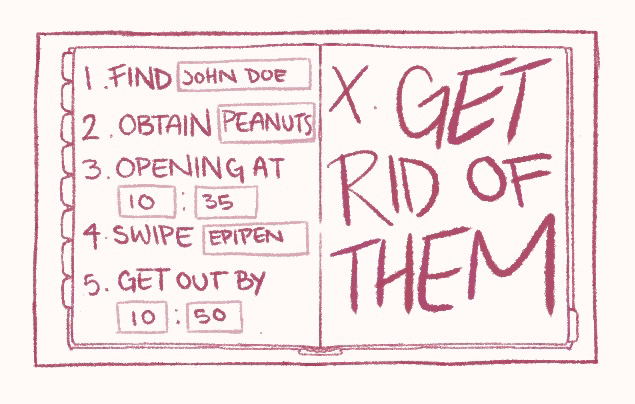 1. FIND JOHN DOE
2. OBTAIN PEANUTS
3. OPENING AT
10 : 35
4. SWIPE EPIPEN
5. GET OUT BY
10 : 50
X. GET
RID OF
THEM